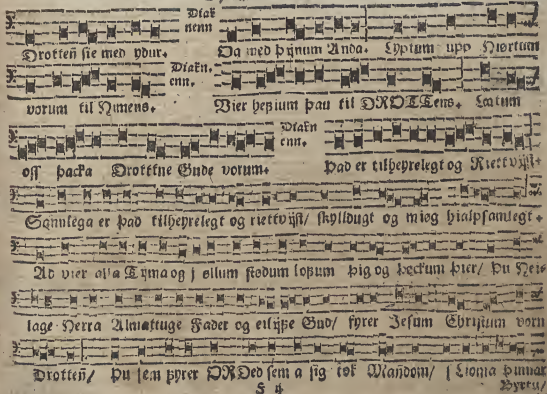 Diak
nenn
Drotteñ sie med ydur. Og med Þijnum Anda. Lyptum upp Hiørtum
Diakn.
enn.
vorum til Himens. Vier hefium þau til DROTTens. Lætum
Diakn
enn.
oss þacka Drottne Gude vorum. Þad er tilheyrelegt og Riettvijst.
Sannlega er þad tilheyrelegt og riettvijst/ skylldugt og miøg hialpsamlegt.
Ad vier alla Tijma og j øllum stødum lofum þig og þøckum þier/ þu Heis
lage Herra Almattuge Fader og eilijfe Gud/ fyrer Jesum Christum vorn
Drotteñ/ Þu sem fyrer ORDed sem a sig tok Mandom/ j Lioma þinnar
F 4 Byrtu/